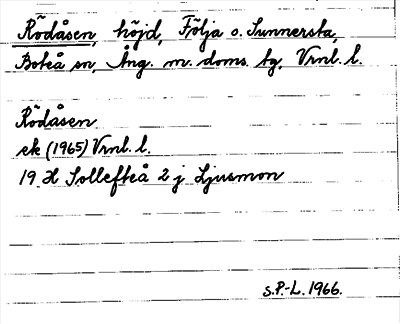 Rödåsen, höjd, Följa o. Sunnersta,
Boteå sn, Ång. m. doms. tg, Vrnl. l.
Rödåsen
ek (1965) Vrnl. l.
19 H Sollefteå 2 j Ljusmon
S.P.-L. 1966.